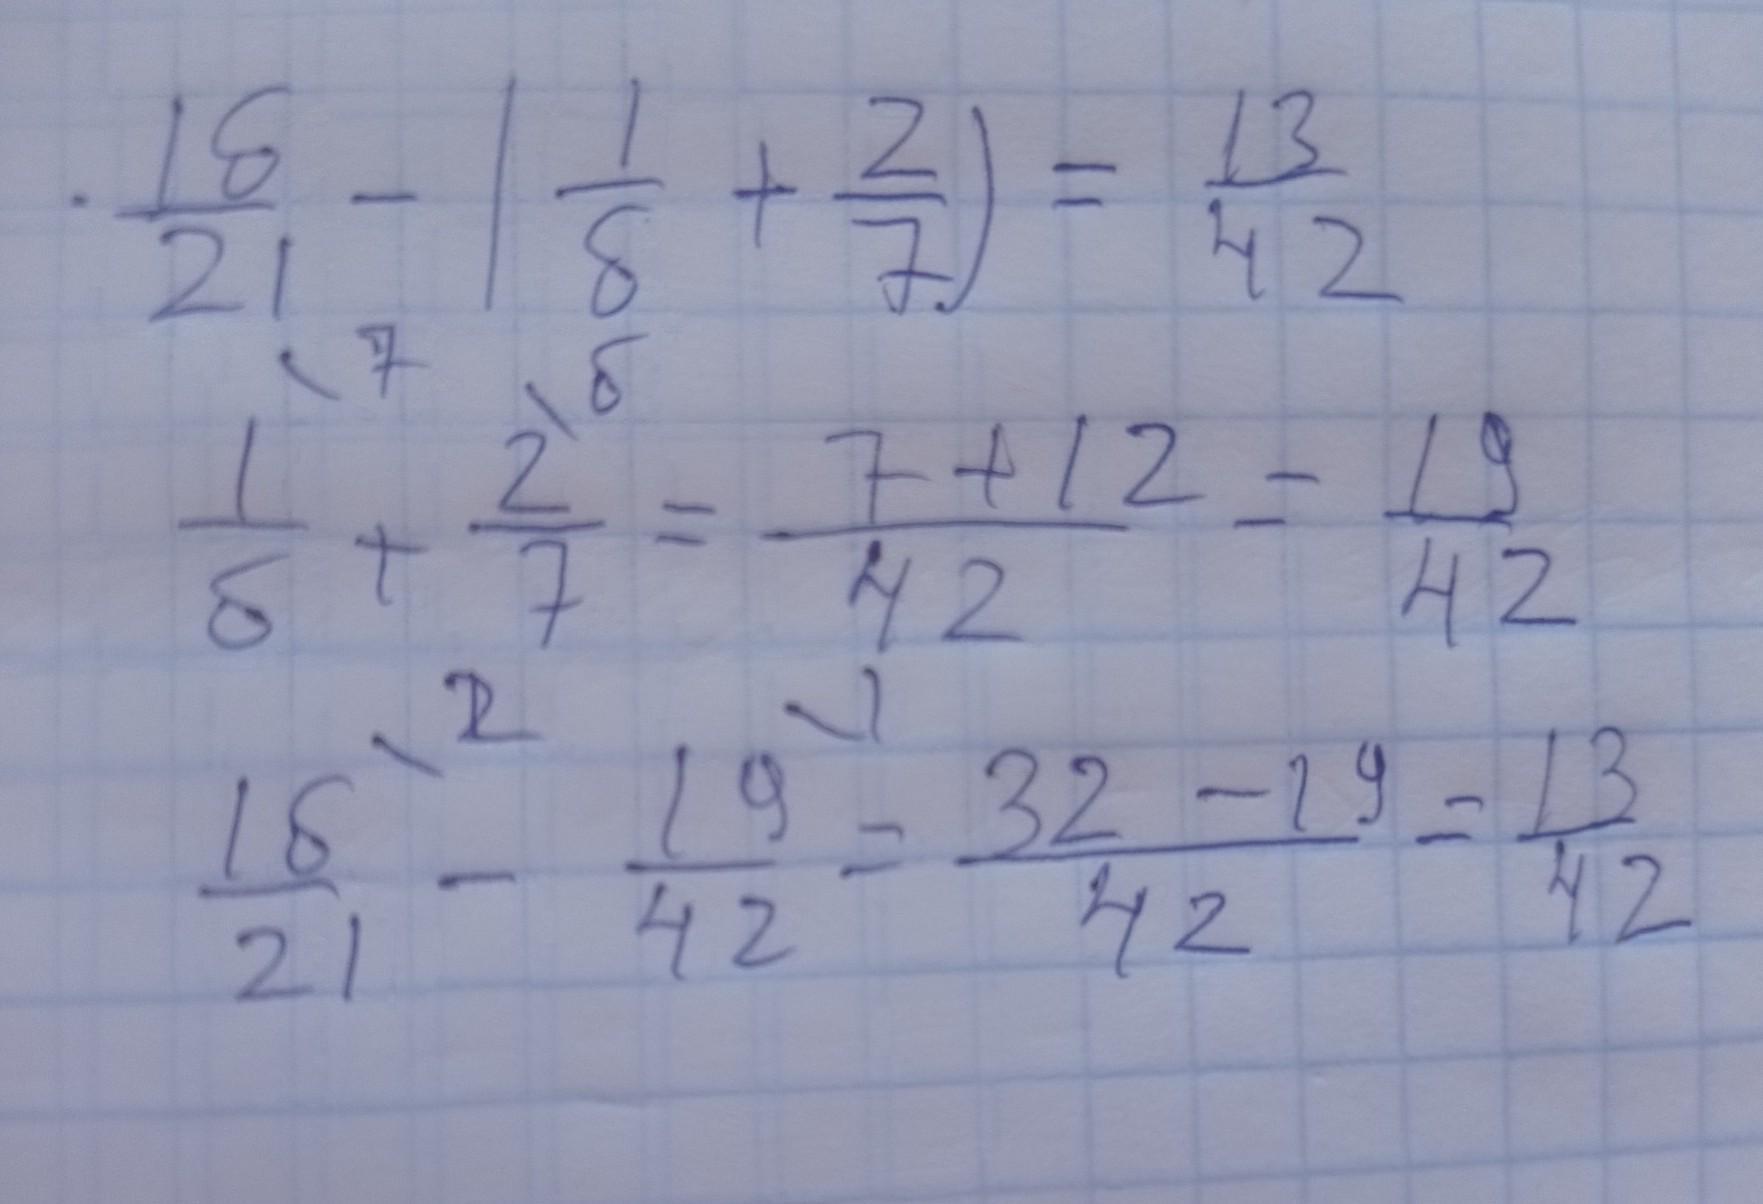 16/21 - (1/6 + 2/7) = 13/42
1\7/6 + 2\6/7 = 7+12/42 = 19/42
16\2/21 - 19\1/42 = 32-19/42 = 13/42